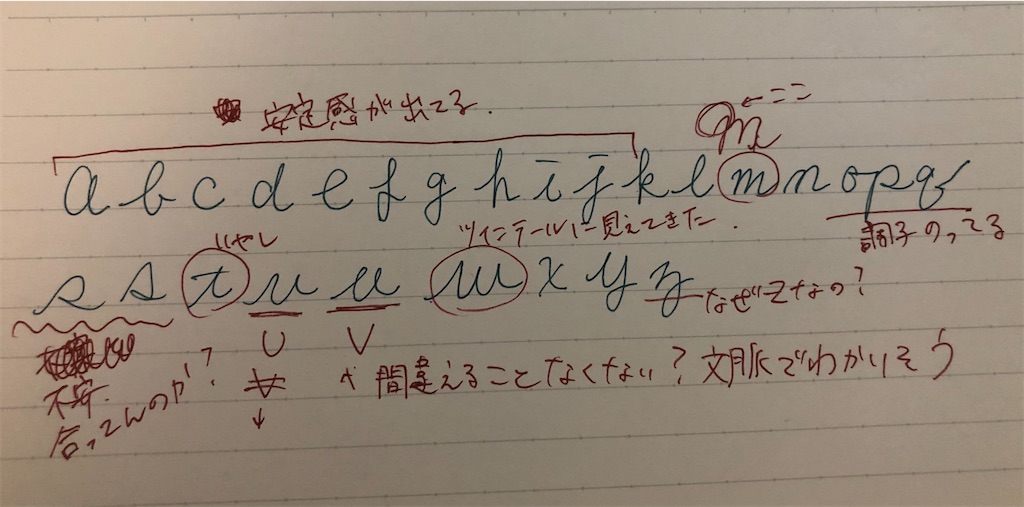 安定感が出てる.
m ←ここ
a b c d e f g h i j k l m n o p q
ツインテールに見えてきた.
調子のってる
s s t u u w x y z
なぜzなの?
U V
不安.
合ってんのか!?
↓
間違えることなくない?文脈でわかりそう